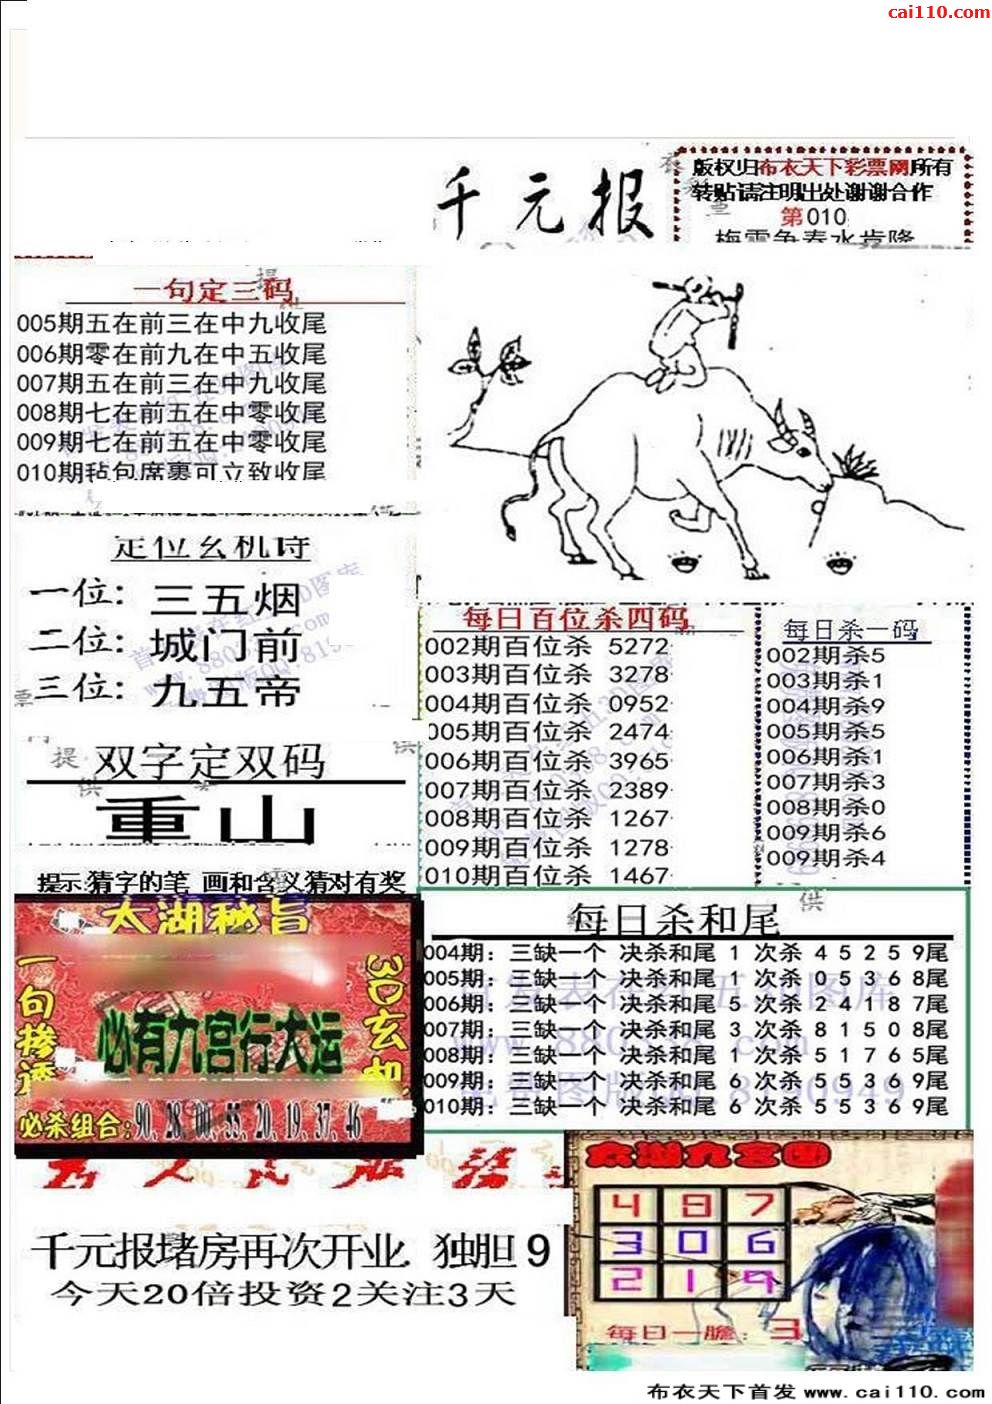 cai110.com
千元报
版权归布衣天下彩票网所有
转贴请注明出处谢谢合作
第010
梅雪争春水肯降
一句定三码
005期五在前三在中九收尾
006期零在前九在中五收尾
007期五在前三在中九收尾
008期七在前五在中零收尾
009期七在前五在中零收尾
010期毡包席裹可立致收尾
定位玄机诗
一位：三五烟
二位：城门前
三位：九五帝
双字定双码
重山
提示:猜字的笔 画和含义猜对有奖
每日百位杀四码
002期百位杀 5272
003期百位杀 3278
004期百位杀 0952
005期百位杀 2474
006期百位杀 3965
007期百位杀 2389
008期百位杀 1267
009期百位杀 1278
010期百位杀 1467
每日杀一码
002期杀5
003期杀1
004期杀9
005期杀5
006期杀1
007期杀3
008期杀0
009期杀6
009期杀4
太湖秘旨
一句掺透
3D玄机
必有九宫行大运
必杀组合:90,28,00,55,20,19,37,46
每日杀和尾
004期：三缺一个 决杀和尾 1 次杀 4 5 2 5 9尾
005期：三缺一个 决杀和尾 1 次杀 0 5 3 6 8尾
006期：三缺一个 决杀和尾 5 次杀 2 4 1 8 7尾
007期：三缺一个 决杀和尾 3 次杀 8 1 5 0 8尾
008期：三缺一个 决杀和尾 5 次杀 5 1 7 6 5尾
009期：三缺一个 决杀和尾 6 次杀 5 5 3 6 9尾
010期：三缺一个 决杀和尾 6 次杀 5 5 3 6 9尾
千元报堵房再次开业. 独胆 9
今天20倍投资2关注3天
太湖九宫图
4 8 7
3 0 6
2 1 9
每日一胆：3
布衣天下首发 www.cai110.com